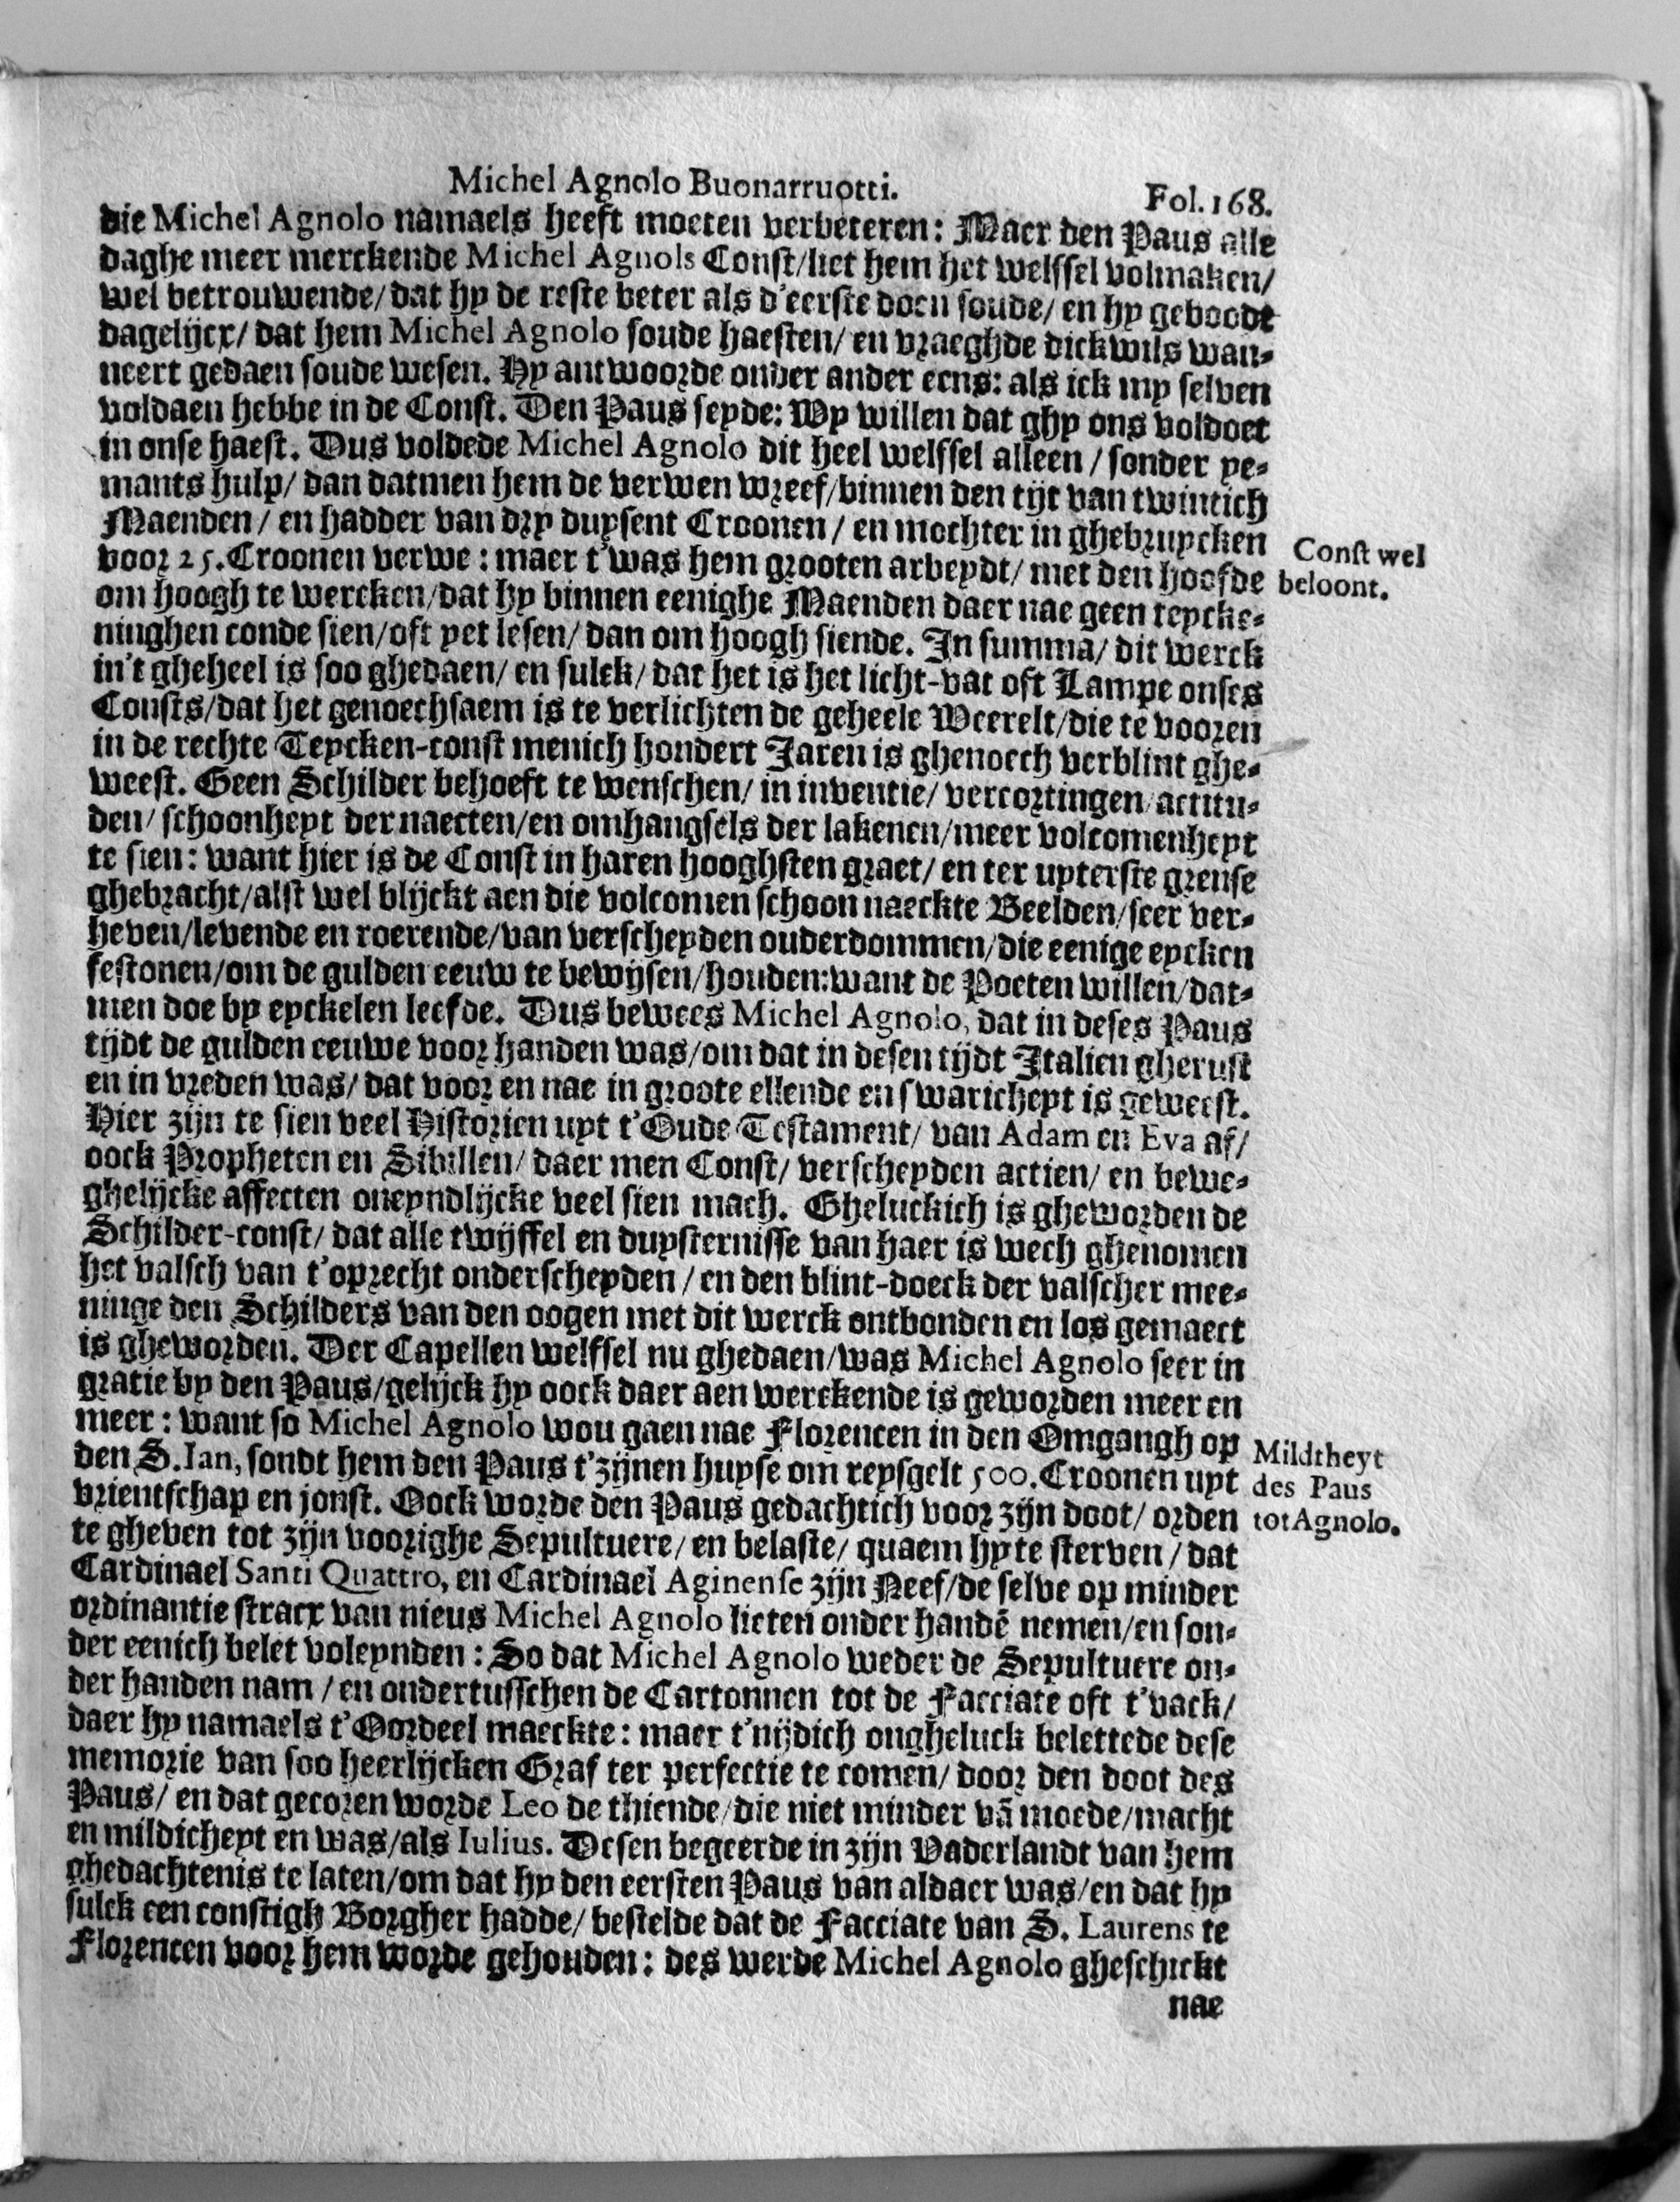 Michel Agnolo Buonarruotti. Fol. 168.
die Michel Agnolo namaels heeft moeten verbeteren: Maer den Paus alle
daghe meer merckende Michel Agnols Const/liet hem het welffsel volmaken/
wel betrouwende/dat hy de reste beter als d'eerste doen soude/ en hy geboodt
dagelijcx/ dat hem Michel Agnolo soude haesten/ en vraeghde dickwils wan-
neert gedaen soude wesen. Hy antwoorde onder ander eens: als ick my selven
voldaen hebbe in de Const. Den Paus seyde: Wy willen dat ghy ons voldoet
in onse haest. Dus voldede Michel Agnolo dit heel welffsel alleen / sonder ye-
mants hulp/ dan datmen hem de verwen wreef/binnen den tijt van twintich
Maenden / en hadder van dry duysent Croonen / en mochter in ghebruycken
voor 25. Croonen verwe: maer t'was hem grooten arbeydt/ met den hoofde
Const wel
beloont.
om hoogh te wercken/dat hy binnen eenighe Maenden daer nae geen teycke-
ninghen conde sien/oft yet lesen/ dan om hoogh siende. In summa/ dit werck
in't gheheel is soo ghedaen/ en sulck/ dat het is het licht-vat oft Lampe onses
Consts/dat het genoechsaem is te verlichten de geheele Weerelt/die te vooren
in de rechte Teycken-const menich hondert Jaren is ghenoech verblint ghe-
weest. Geen Schilder behoeft te wenschen/ in inventie/ vercortingen/actitu-
den/ schoonheyt der naecten/en omhangsels der lakenen/meer volcomenheyt
te sien: want hier is de Const in haren hooghsten graet/ en ter uyterste grense
ghebracht/alst wel blijckt aen die volcomen schoon naeckte Beelden/seer ver-
heven/levende en roerende/van verscheyden ouderdommen/die eenige eycken
festonen/om de gulden eeuw te bewijsen/houden: want de Poeten willen/dat-
men doe by eyckelen leefde. Dus bewees Michel Agnolo, dat in deses Paus
tijdt de gulden eeuwe voor handen was/om dat in desen tijdt Italien gherust
en in vreden was/ dat voor en nae in groote ellende en swaricheyt is geweest.
Hier zijn te sien veel Historien uyt t'Oude Testament/ van Adam en Eva af/
oock Propheten en Sibillen/ daer men Const/ verscheyden actien/ en bewe-
ghelijcke affecten oneyndlijcke veel sien mach. Gheluckich is gheworden de
Schilder-const/ dat alle twijffel en duysternisse van haer is wech ghenomen
het valsch van t'oprecht onderscheyden / en den blint-doeck der valscher mee-
ninge den Schilders van den oogen met dit werck ontbonden en los gemaect
is gheworden. Der Capellen welffsel nu ghedaen/was Michel Agnolo seer in
gratie by den Paus/gelijck hy oock daer aen werckende is geworden meer en
meer: want so Michel Agnolo wou gaen nae Florencen in den Omgangh op
den S. Ian, sondt hem den Paus t'zijnen huyse om reysgelt 500. Croonen uyt
vrientschap en jonst. Oock worde den Paus gedachtich voor zijn doot/ orden
Mildtheyt
des Paus
tot Agnolo.
te gheven tot zijn voorighe Sepultuere/ en belaste/ quaem hy te sterven / dat
Cardinael Santi Quattro, en Cardinael Aginense zijn Neef/de selve op minder
ordinantie stracx van nieus Michel Agnolo lieten onder handē nemen/en son-
der eenich belet voleynden: So dat Michel Agnolo weder de Sepultuere on-
der handen nam / en ondertusschen de Cartonnen tot de Facciate oft t'vack/
daer hy namaels t'Oordeel maeckte: maer t'nijdich ongheluck belettede dese
memorie van soo heerlijcken Graf ter perfectie te comen/ door den doot des
Paus/ en dat gecoren worde Leo de thiende/die niet minder vā moede/macht
en mildicheyt en was/als Iulius. Desen begeerde in zijn Vaderlandt van hem
ghedachtenis te laten/om dat hy den eersten Paus van aldaer was/en dat hy
sulck een constigh Borgher hadde/ bestelde dat de Facciate van S. Laurens te
Florencen voor hem worde gehouden: des werde Michel Agnolo gheschickt
nae